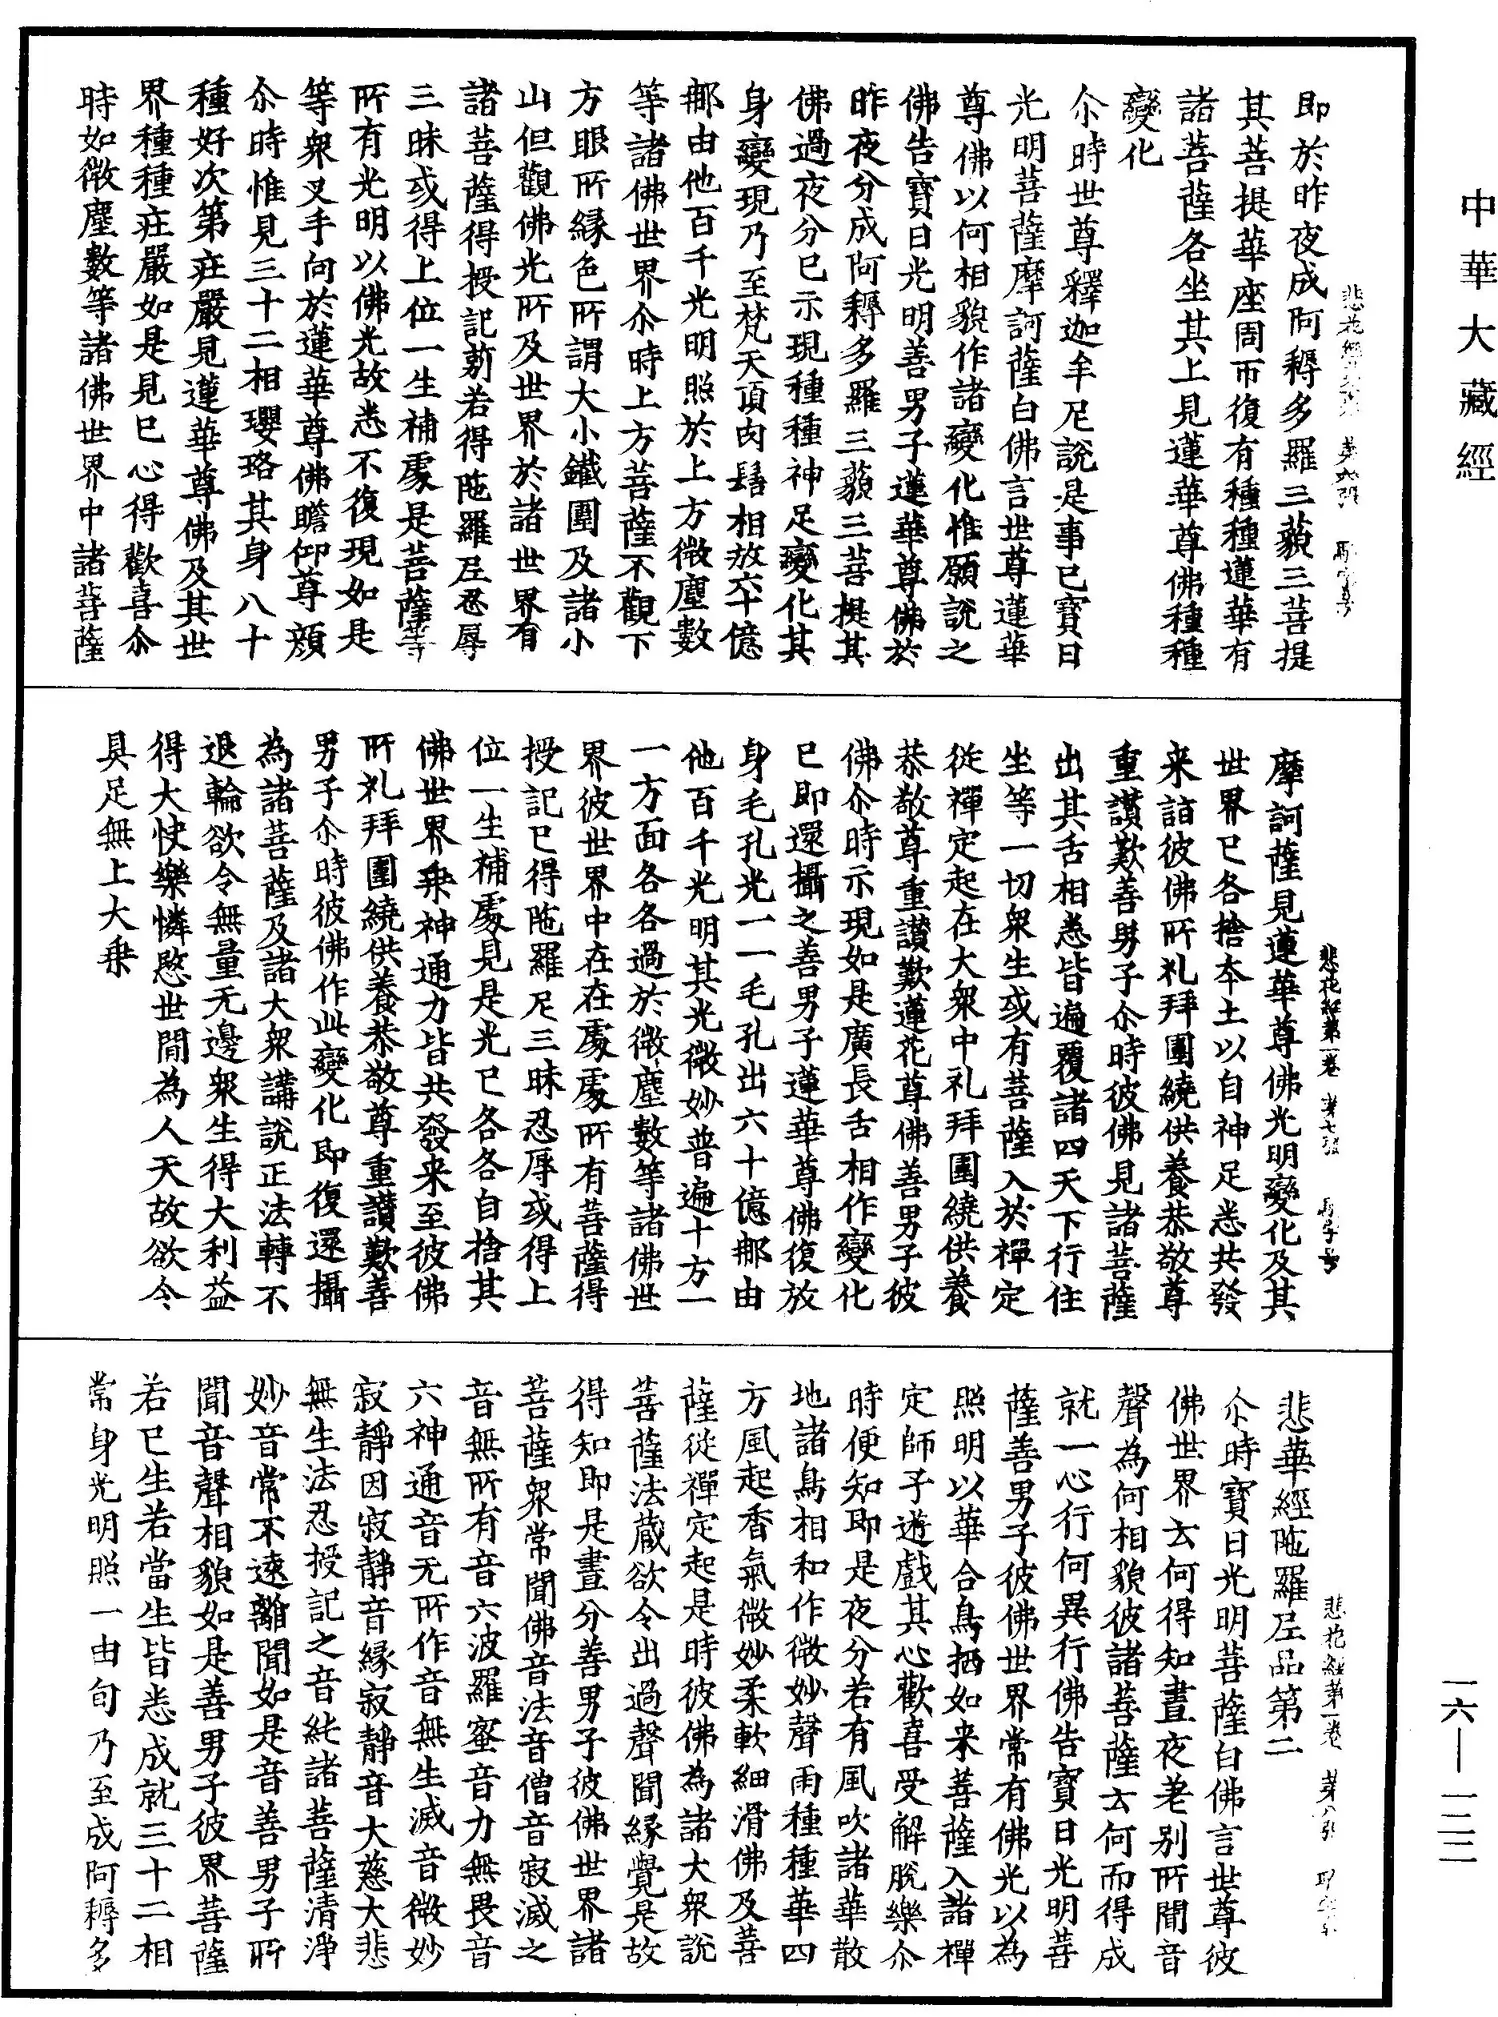 中華大藏經
即於昨夜成阿耨多羅三藐三菩提
其菩提華座周帀復有種種蓮華有
諸菩薩各坐其上見蓮華尊佛種種
變化
尒時世尊釋迦牟尼說是事已寶日
光明菩薩摩訶薩白佛言世尊蓮華
尊佛以何相貌作諸變化惟願說之
佛告寶日光明善男子蓮華尊佛於
昨夜分成阿耨多羅三藐三菩提其
佛過夜分已示現種種神足變化其
身變現乃至梵天頂肉髻相放六十億
那由他百千光明照於上方微塵數
等諸佛世界尒時上方菩薩不觀下
方眼所緣色所謂大小鐵圍及諸小
山但觀佛光所及世界於諸世界有
諸菩薩得授記莂若得陁羅尼忍辱
三昧或得上位一生補處是菩薩等
所有光明以佛光故悉不復現如是
等衆叉手向於蓮華尊佛瞻仰尊顏
尒時惟見三十二相瓔珞其身八十
種好次第莊嚴見蓮華尊佛及其世
界種種莊嚴如是見已心得歡喜尒
時如微塵數等諸佛世界中諸菩薩
悲花經第一卷 第七張
摩訶薩見蓮華尊佛光明變化及其
世界已各捨本土以自神足悉共發
来詣彼佛所礼拜圍繞供養恭敬尊
重讃歎善男子尒時彼佛見諸菩薩
出其舌相悉皆遍覆諸四天下行住
坐等一切衆生或有菩薩入於禪定
從禪定起在大衆中礼拜圍繞供養
恭敬尊重讃歎蓮花尊佛善男子彼
佛尒時示現如是廣長舌相作變化
已即還攝之善男子蓮華尊佛復放
身毛孔光一一毛孔出六十億那由
他百千光明其光微妙普遍十方一
一方面各各過於微塵數等諸佛世
界彼世界中在在處處所有菩薩得
授記已得陁羅尼三昧忍辱或得上
位一生補處見是光已各各自捨其
佛世界乗神通力皆共發来至彼佛
所礼拜圍繞供養恭敬尊重讃歎善
男子尒時彼佛作此變化即復還攝
為諸菩薩及諸大衆講說正法轉不
退輪欲令無量无邊衆生得大利益
得大快樂憐愍世間為人天故欲令
具足無上大乗
悲花經第一卷 第八張
悲華經陁羅尼品第二
尒時寶日光明菩薩白佛言世尊彼
佛世界云何得知晝夜差別所聞音
聲為何相貌彼諸菩薩云何而得成
就一心行何異行佛告寶日光明菩
薩善男子彼佛世界常有佛光以為
照明以華合鳥栖如来菩薩入諸禪
定師子遊戲其心歡喜受解脫樂尒
時便知即是夜分若有風吹諸華散
地諸鳥相和作微妙聲雨種種華四
方風起香氣微妙柔軟細滑佛及菩
薩從禪定起是時彼佛為諸大衆說
菩薩法藏欲令出過聲聞緣覺是故
得知即是晝分善男子彼佛世界諸
菩薩衆常聞佛音法音僧音寂滅之
音無所有音六波羅蜜音力無畏音
六神通音无所作音無生滅音微妙
寂靜音因寂靜音緣寂靜音大慈大悲
無生法忍授記之音純諸菩薩清淨
妙音常不遠離聞如是音善男子所
聞音聲相貌如是善男子彼界菩薩
若已生若當生皆悉成就三十二相
常身光明照一由旬乃至成阿耨多
一六—一二二